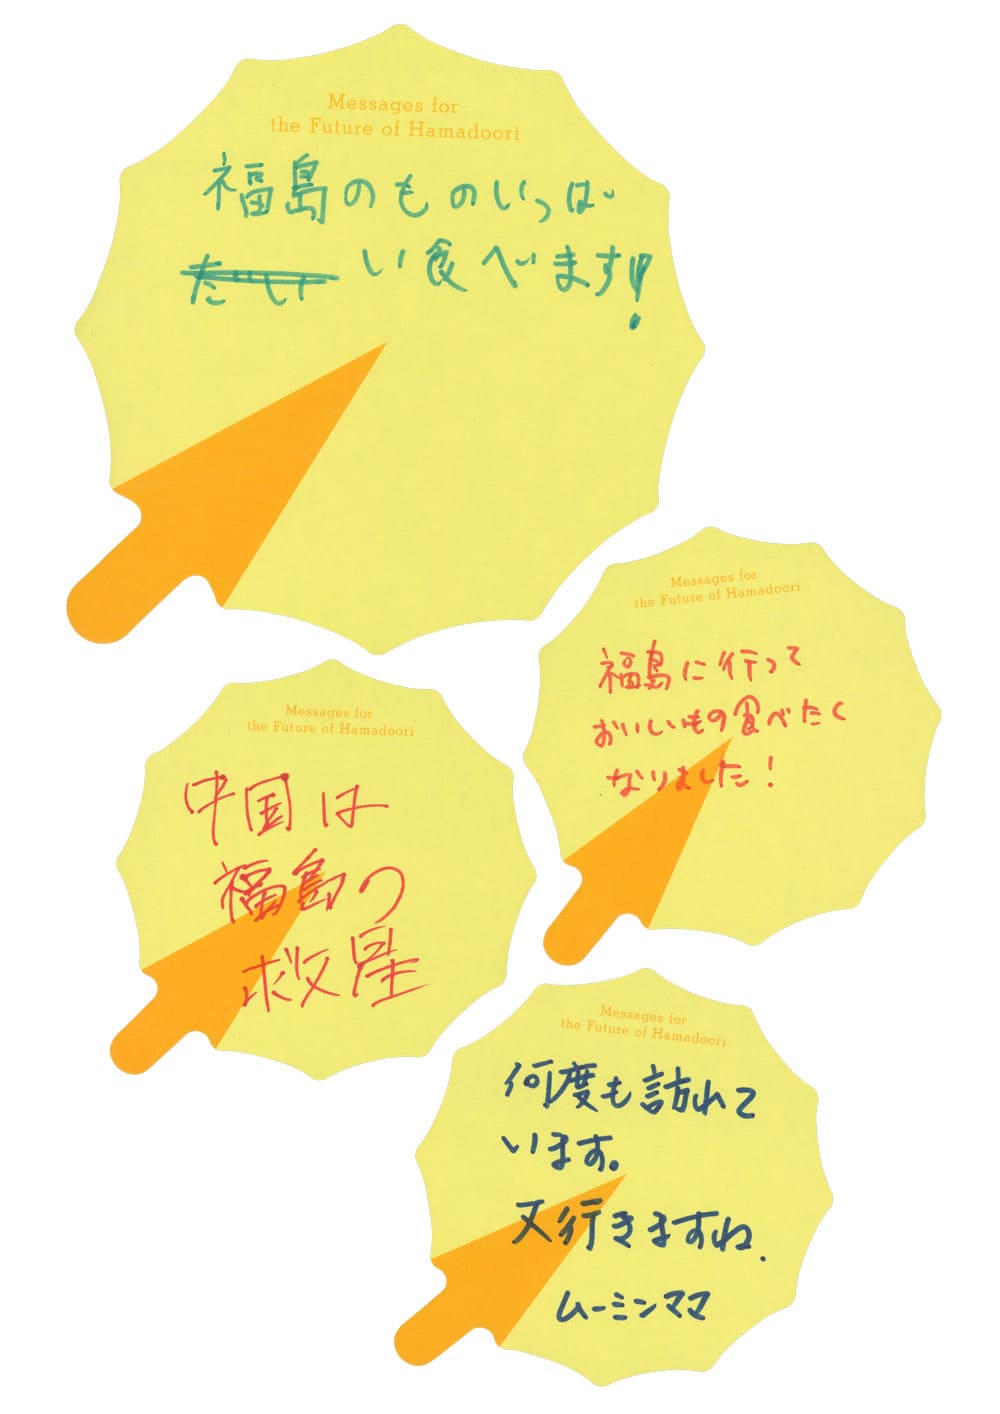 Messages for
the Future of Hamadoori
福島のものいっぱ
い食べます!!
Messages for
the Future of Hamadoori
福島に行って
おいしいもの食べたく
なりました!
Messages for
the Future of Hamadoori
中国は
福島の
救星
Messages for
the Future of Hamadoori
何度も訪れて
います。
又行きますね.
ムーミンママ